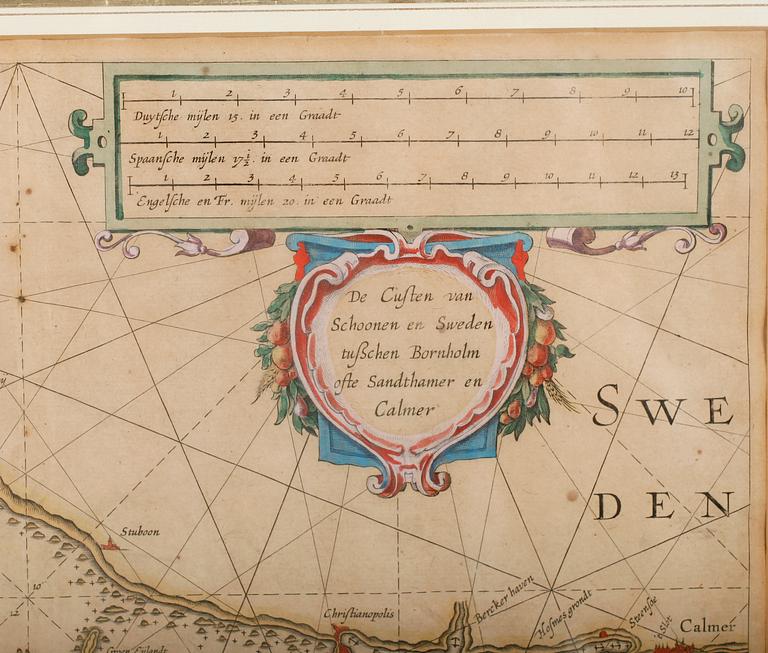 1 2 3 4 5 6 7 8 9 10
Duytſche mijlen 15. in een Graadt
1 2 3 4 5 6 7 8 9 10 11 12
Spaanſche mijlen 17½ in een Graadt
1 2 3 4 5 6 7 8 9 10 11 12 13
Engelſche en Fr. mijlen 20. in een Graadt
De Cuſten van
Schoonen en Sweden
tußchen Bornholm
ofte Sandthamer en
Calmer
SWE
DEN
Stuboon
10
12
Christianopolis
Bercker haven
Hofmes grondt
Steenſoe
t'Slot
Calmer